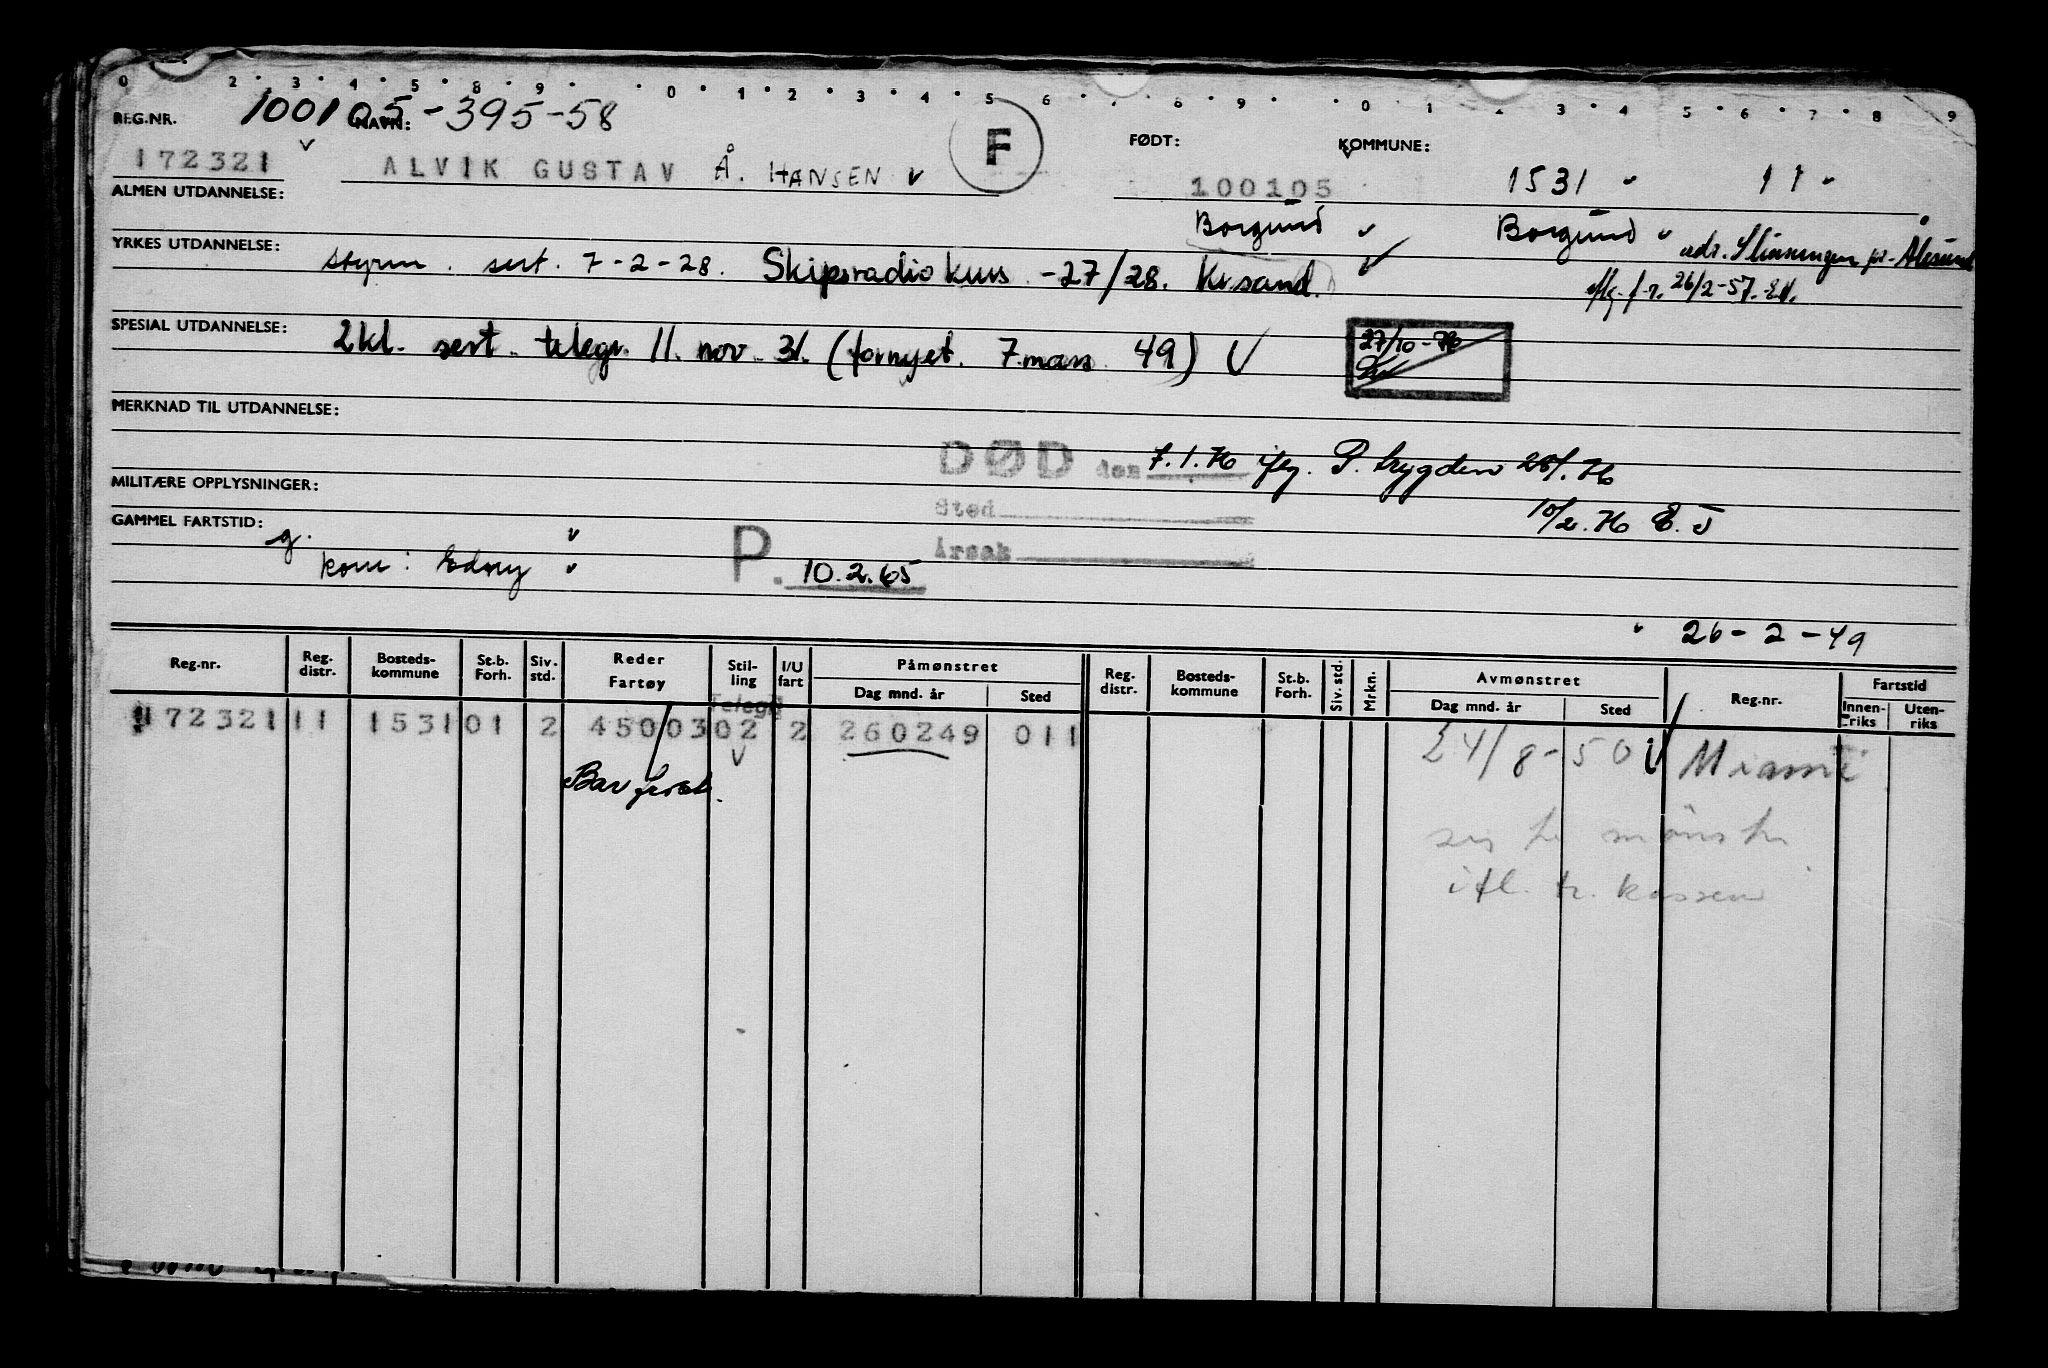 0 2 3 4 5 8 9 0 1 2 3 4 5 6 8 9 0 1 3 4 5 6 7 8 9
100105-395-58
REG.NR. NAVN: F FØDT: KOMMUNE:
172321 ALVIK GUSTAV Å. HANSEN 100105 1531 11
ALMEN UTDANNELSE: Borgund Borgund adr. Slinningen pr. Ålesund
YRKES UTDANNELSE: styrm. sert. 7-2-28. Skipsradiokurs -27/28. Kr.sand. 26/2-57.
SPESIAL UTDANNELSE: 2kl. sert. telegr. 11. nov. 31. (fornyet. 7 mars 49) 27/10-76
MERKNAD TIL UTDANNELSE:
DØD den 7.1.76 iflg. P. trygden 28/1.76
MILITÆRE OPPLYSNINGER: Sted 10/2.76 E.J
GAMMEL FARTSTID: g. Årsak
kone: Edny P. 10.2.65
26-2-49
Reg.nr. Reg. distr. Bosteds- kommune St.b. Forh. Siv. std. Reder Fartøy Stil- ling I/U fart Påmønstret Dag mnd. år Sted Reg. distr. Bosteds- kommune St.b. Forh. Siv. std. Mrkn. Avmønstret Dag mnd. år Sted Reg.nr. Fartstid Innen- riks Uten- riks
Telegr
172321 11 1531 01 2 450/03 02 2 260249 011 24/8-50 Miami
mønstr
ifl. tr. kassen